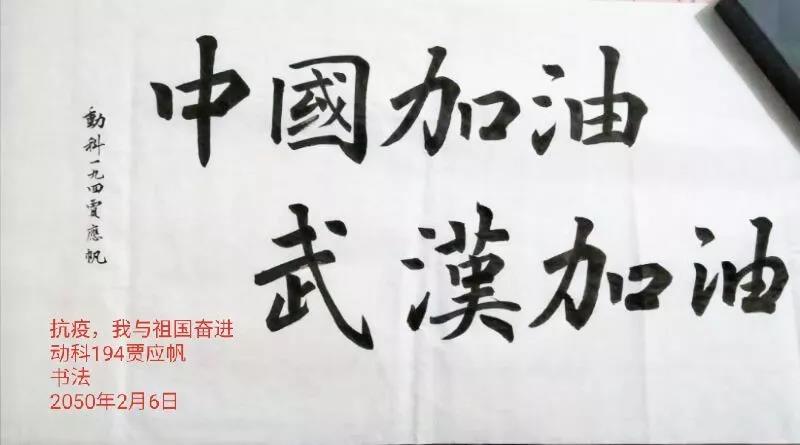 中國加油
武漢加油
動科一九四賈應帆
抗疫，我与祖国奋进
动科194贾应帆
书法
2050年2月6日